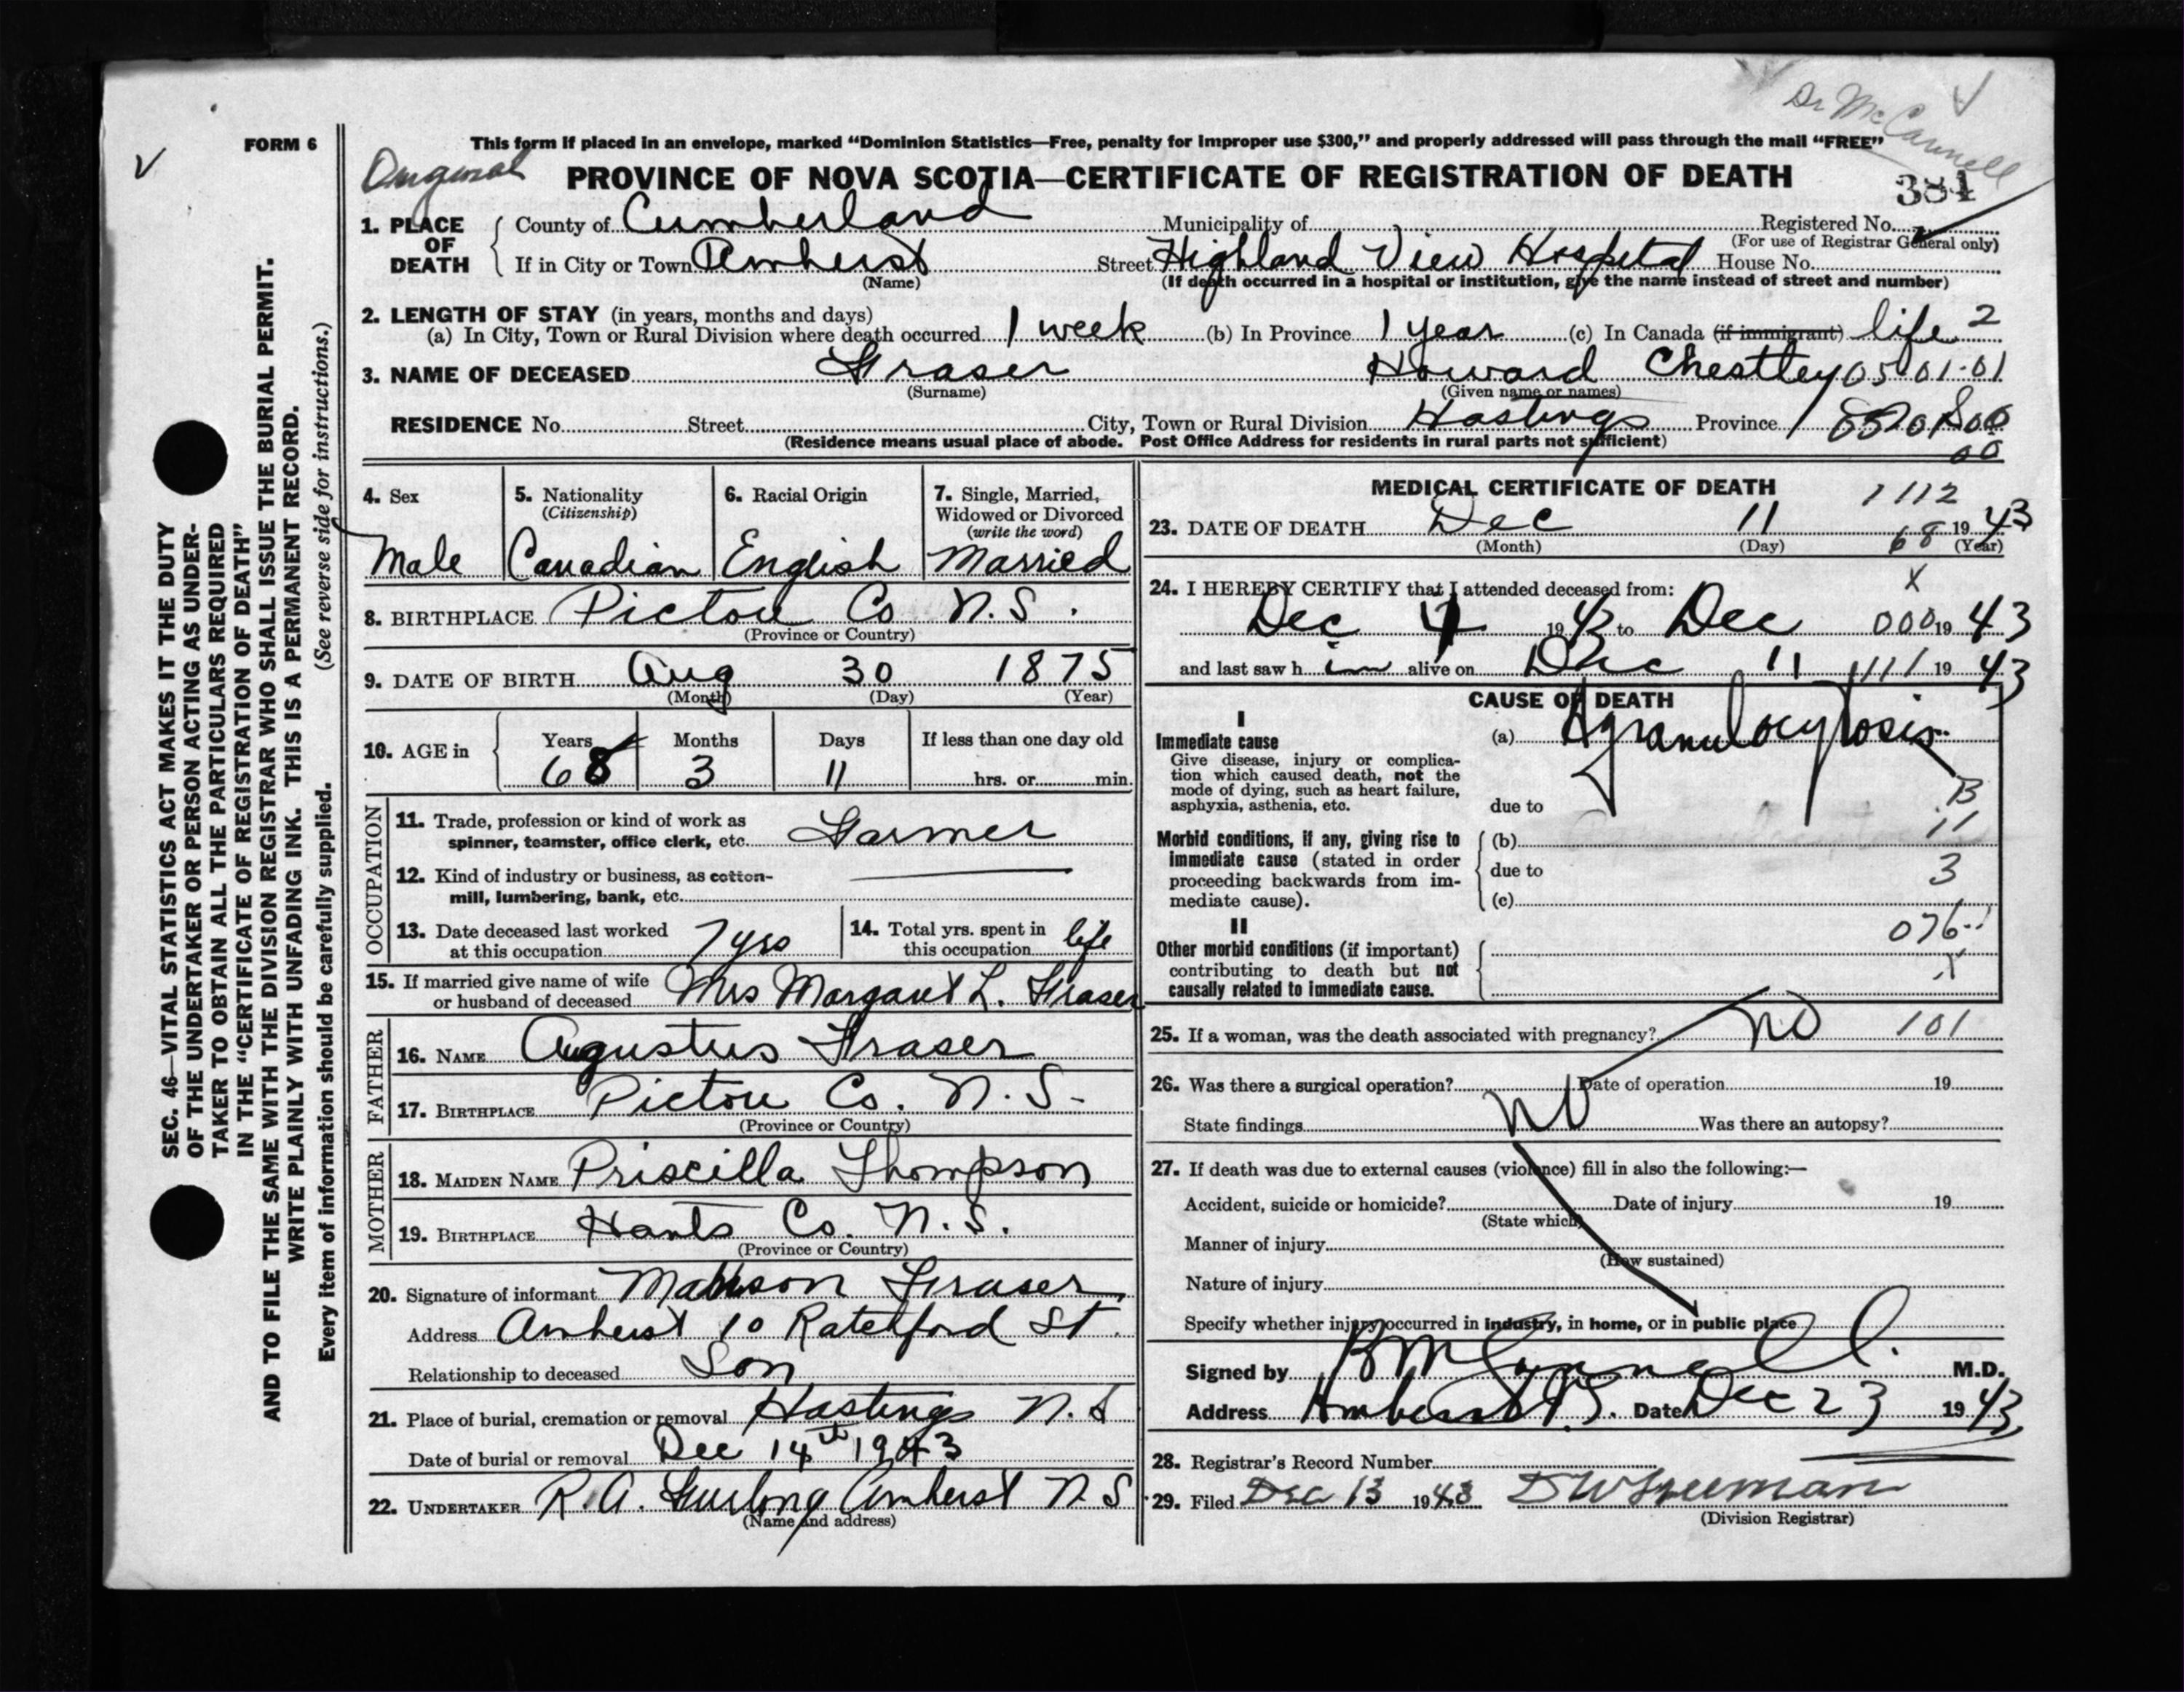 Dr McCannell
FORM 6
This form if placed in an envelope, marked “Dominion Statistics—Free, penalty for improper use $300,” and properly addressed will pass through the mail “FREE”
Original
PROVINCE OF NOVA SCOTIA—CERTIFICATE OF REGISTRATION OF DEATH
381
1. PLACE OF DEATH
County of Cumberland Municipality of Registered No.
(For use of Registrar General only)
If in City or Town Amherst Street Highland View Hospital House No.
(Name) (If death occurred in a hospital or institution, give the name instead of street and number)
2. LENGTH OF STAY (in years, months and days)
(a) In City, Town or Rural Division where death occurred 1 week (b) In Province 1 year (c) In Canada (if immigrant) life 2
3. NAME OF DECEASED Fraser Howard Chestley 05 01-01
(Surname) (Given name or names)
RESIDENCE No. Street City, Town or Rural Division Hastings Province
(Residence means usual place of abode. Post Office Address for residents in rural parts not sufficient)
00
4. Sex 5. Nationality (Citizenship) 6. Racial Origin 7. Single, Married, Widowed or Divorced (write the word)
Male Canadian English Married
8. BIRTHPLACE Pictou Co N.S.
(Province or Country)
9. DATE OF BIRTH Aug 30 1875
(Month) (Day) (Year)
10. AGE in Years Months Days If less than one day old
68 3 11 hrs. or min.
OCCUPATION
11. Trade, profession or kind of work as
spinner, teamster, office clerk, etc. Farmer
12. Kind of industry or business, as cotton-
mill, lumbering, bank, etc.
13. Date deceased last worked
at this occupation 7 yrs
14. Total yrs. spent in
this occupation life
15. If married give name of wife
or husband of deceased Mrs Margaret L. Fraser
FATHER
16. NAME Augustus Fraser
17. BIRTHPLACE Pictou Co. N.S.
(Province or Country)
MOTHER
18. MAIDEN NAME Priscilla Thompson
19. BIRTHPLACE Hants Co. N.S.
(Province or Country)
20. Signature of informant Fraser
Address Amherst 10 Ratchford St.
Relationship to deceased Son
21. Place of burial, cremation or removal Hastings N.S
Date of burial or removal Dec 14th 1943
22. UNDERTAKER R.A. Furlong Amherst N S
(Name and address)
MEDICAL CERTIFICATE OF DEATH
1112
23. DATE OF DEATH Dec 11 1943
(Month) (Day) (Year)
68
24. I HEREBY CERTIFY that I attended deceased from:
X
Dec 4 1943 to Dec 000 1943
and last saw him alive on Dec 11 1111 1943
CAUSE OF DEATH
I
Immediate cause
Give disease, injury or complica-
tion which caused death, not the
mode of dying, such as heart failure,
asphyxia, asthenia, etc.
(a) Agranulocytosis
due to
B
11
Morbid conditions, if any, giving rise to
immediate cause (stated in order
proceeding backwards from im-
mediate cause).
(b)
due to
3
(c)
II
Other morbid conditions (if important)
contributing to death but not
causally related to immediate cause.
076
X
25. If a woman, was the death associated with pregnancy? no 101
26. Was there a surgical operation? no Date of operation 19
State findings Was there an autopsy?
27. If death was due to external causes (violence) fill in also the following:—
Accident, suicide or homicide? Date of injury 19
(State which)
Manner of injury
(How sustained)
Nature of injury
Specify whether injury occurred in industry, in home, or in public place
Signed by M.D.
Address Amherst N.S. Date Dec 23 1943
28. Registrar's Record Number
29. Filed Dec 13 1943 D W Freeman
(Division Registrar)
SEC. 46—VITAL STATISTICS ACT MAKES IT THE DUTY
OF THE UNDERTAKER OR PERSON ACTING AS UNDER-
TAKER TO OBTAIN ALL THE PARTICULARS REQUIRED
IN THE “CERTIFICATE OF REGISTRATION OF DEATH”
AND TO FILE THE SAME WITH THE DIVISION REGISTRAR WHO SHALL ISSUE THE BURIAL PERMIT.
WRITE PLAINLY WITH UNFADING INK. THIS IS A PERMANENT RECORD.
Every item of information should be carefully supplied. (See reverse side for instructions.)